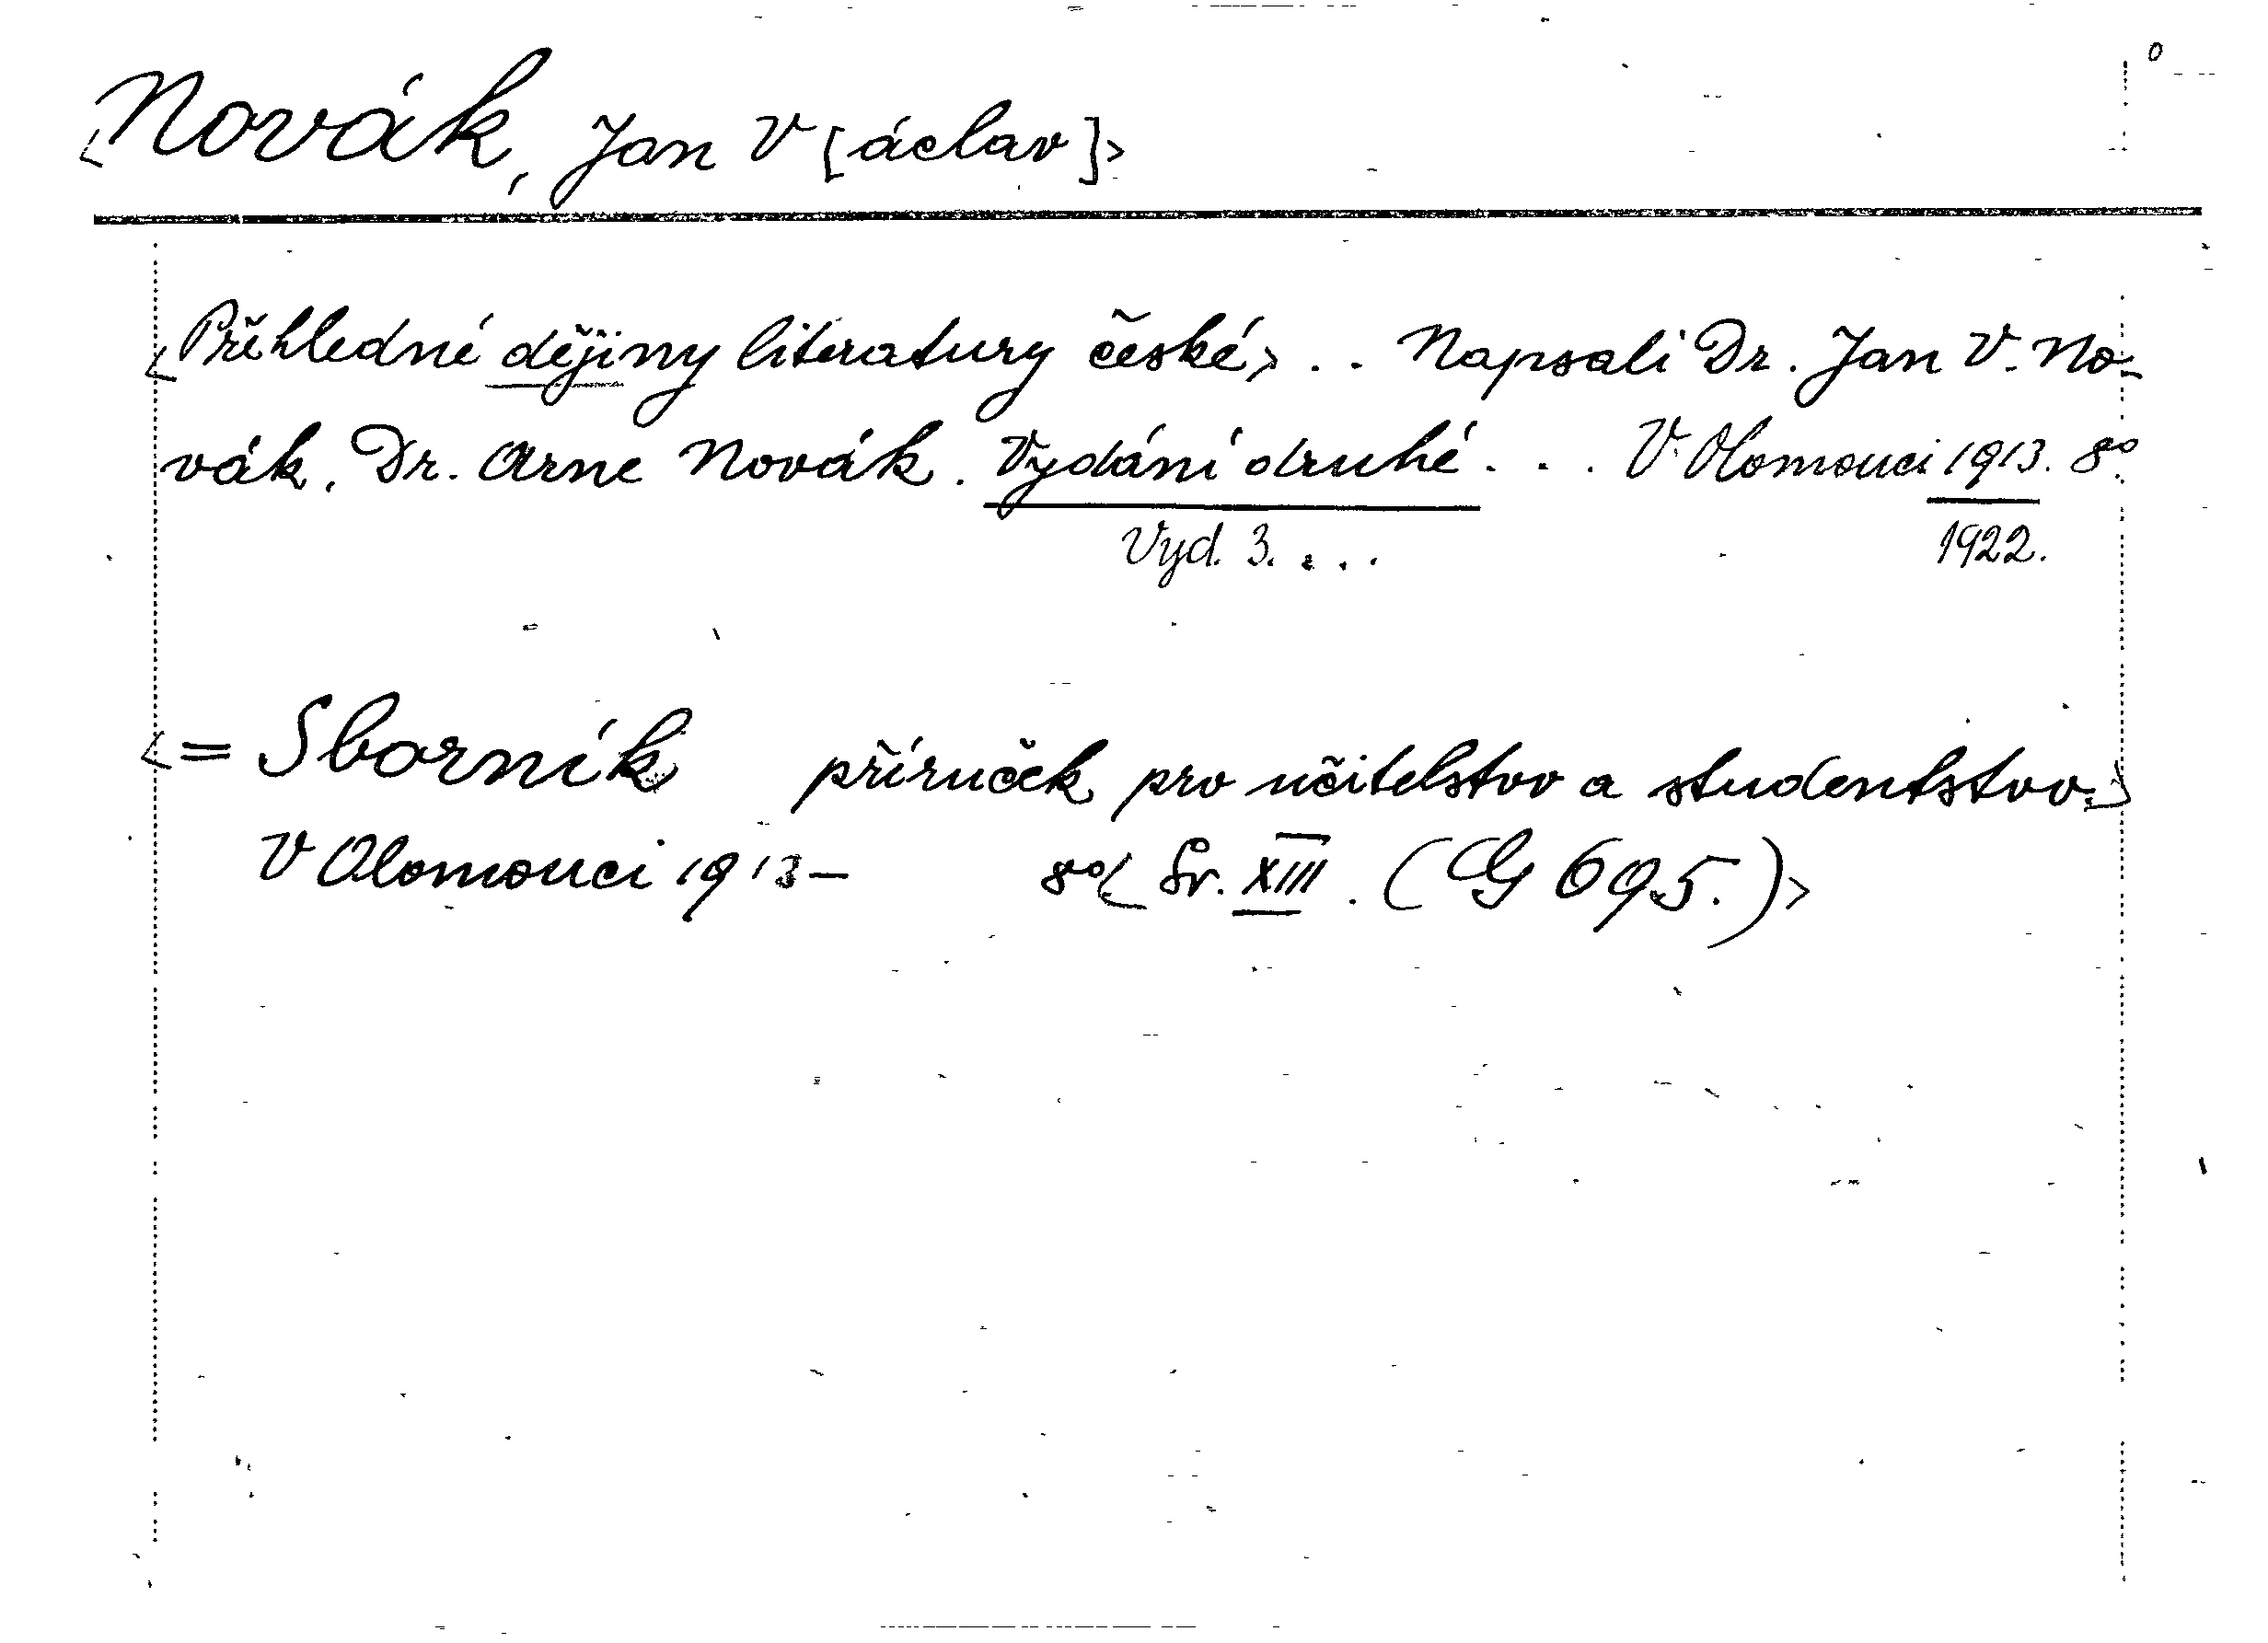 <Novák, Jan V[áclav]>
<Přěhledné dějiny literatury české> . . Napsali Dr. Jan V. No-
vák, Dr. Arne Novák. Vydání druhé . . . V Olomouci 1913. 8°.
Vyd. 3. . . . 1922.
<= Sborník příruček pro učitelstvo a studentstvo.>
V Olomouci 1913– 8°< Sv. XIII. (G 695.)>